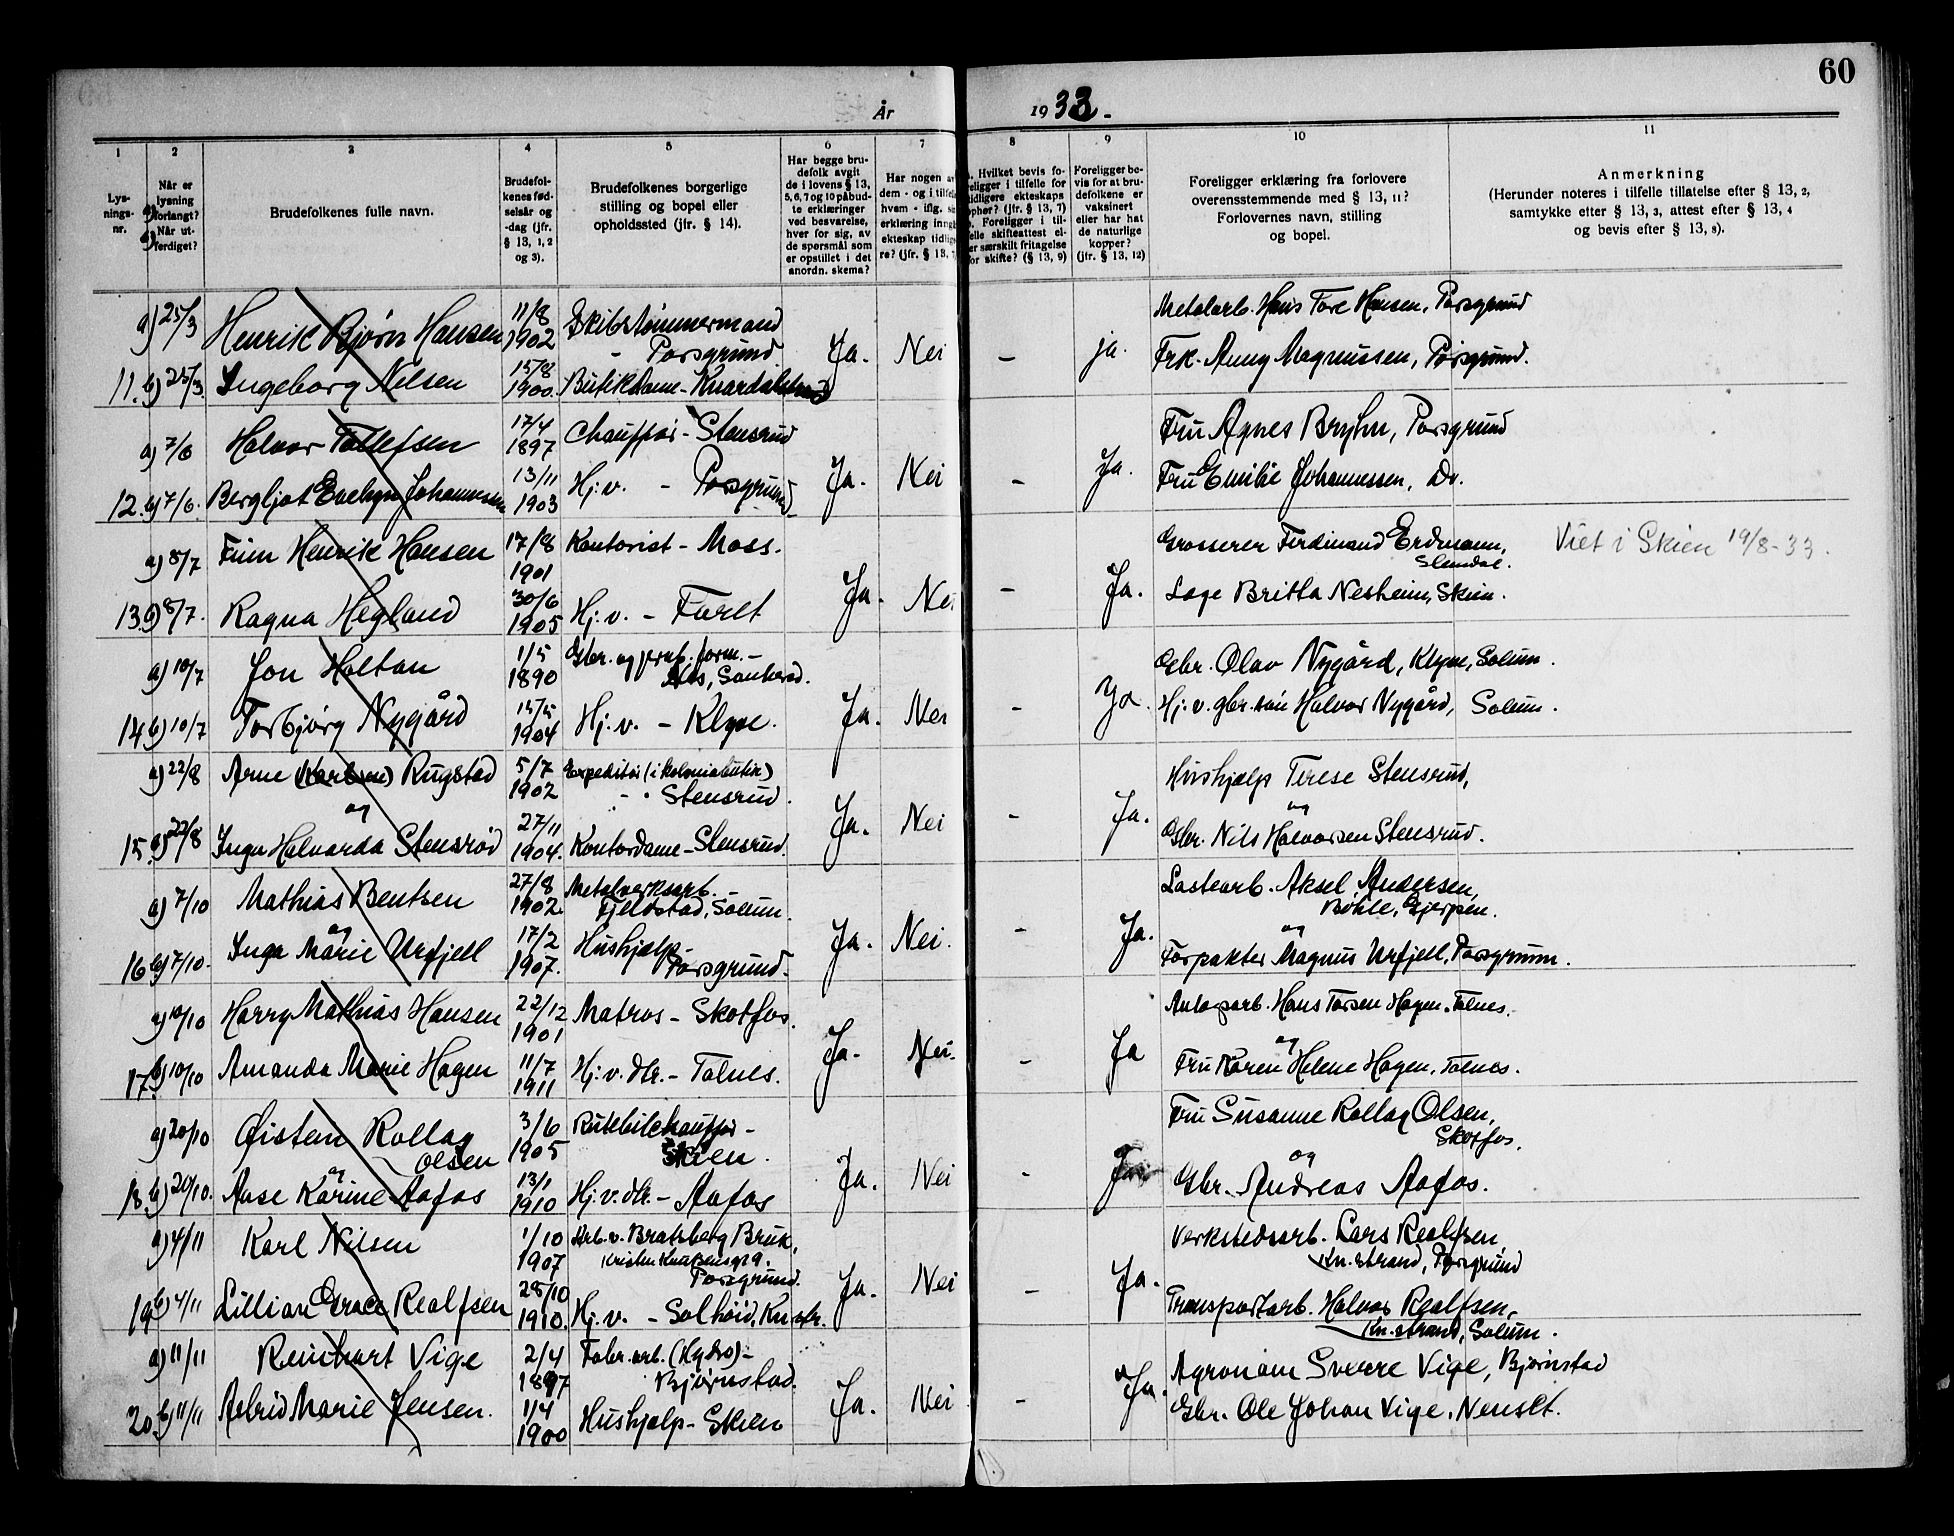 60
År 1933.
1 2 3 4 5 6 7 8 9 10 11
Lys-
nings-
nr.
Når er
lysning
forlangt?
Når ut-
ferdiget?
Brudefolkenes fulle navn.
Brudefol-
kenes fød-
selsår og
-dag (jfr.
§ 13, 1, 2
og 3).
Brudefolkenes borgerlige
stilling og bopel eller
opholdssted (jfr. § 14).
Har begge bru-
defolk avgit
de i lovens § 13,
5, 6, 7 og 10 påbud-
te erklæringer
ved besvarelse,
hver for sig, av
de spørsmål som
er opstillet i det
anordn. skema?
Har nogen av
dem - og i tilfelle
hvem - iflg. si
erklæring inng
ekteskap tidlig
re? (jfr. § 13, 7
Hvilket bevis fo-
religger i tilfelle for
tidligere ekteskaps
ophør? (jfr. § 13, 7)
Foreligger i til-
felle skifteattest el-
er særskilt fritagelse
for skifte? (§ 13, 9)
Foreligger be-
vis for at bru-
defolkene er
vaksinert
eller har hat
de naturlige
kopper?
(jfr. § 13, 12)
Foreligger erklæring fra forlovere
overensstemmende med § 13, 11?
Forlovernes navn, stilling
og bopel.
Anmerkning
(Herunder noteres i tilfelle tillatelse efter § 13, 2,
samtykke efter § 13, 3, attest efter § 13, 4
og bevis efter § 13, 8).
a) 25/3 Henrik Bjørn Hansen 11/8 1902 Skibstømmermand
- Porsgrund Ja. Nei - ja. Metalarb. Hans Tore Hansen, Porsgrund
11. b) 25/3 Ingeborg Nelsen 15/8 1900. Butikdame - Knardalstrand Frk. Anny Magnussen, Porsgrund.
a) 7/6 Halvor Tollefsen 17/4 1897 Chauffør - Stensrud Fru Agnes Bryhn, Porsgrund
12. b) 7/6. Bergljot Evelyn Johannessen 13/11 1903 Hj.v. - Porsgrund Ja. Nei - Ja. Fru Emilie Johannessen, Do.
a) 8/7 Finn Henrik Hansen 17/8 1901 Kontorist - Moss. Grosserer Ferdinand Erdmann,
Slemdal. Viet i Skien 19/8-33.
13. b) 8/7. Ragna Hegland 30/6 1905 Hj.v. - Faret Ja. Nei - Ja. Lage Britta Nesheim, Skien.
a) 10/7 Jon Holtan 1/5 1890 Gbr. og form. -
Sauherad. Gbr. Olav Nygård, Klyve, Solum.
14. b) 10/7 Torbjørg Nygård 15/5 1904 Hj.v. - Klyve. Ja. Nei - Ja. Hj.v. gbr.søn Halvor Nygård, Solum.
a) 22/8 Arne (Karlsen) Rugstad 5/7 1902 Expeditør (i kolonialbutik)
- Stensrud. Hushjælp Terese Stensrud,
og og
15. b) 22/8 Inga Halvarda Stensrød 27/11 1904. Kontordame - Stensrud. Ja. Nei - Ja. Gbr. Nils Halvorsen Stensrud.
a) 7/10 Mathias Bentsen 27/8 1902 Metalverksarb. -
Fjeldstad, Solum. Lastearb. Aksel Andersen,
Bøhle, Gjerpen.
og og
16 b) 7/10. Inga Marie Urfjell 17/2 1907. Hushjælp -
Porsgrund. Ja. Nei. - Ja. Forpakter Magnus Urfjell, Porsgrunn.
a) 10/10 Harry Mathias Hansen 22/12 1901 Matros - Skotfos. Hans Torsen Hagen. Tolnes.
og
17. b) 10/10 Amanda Marie Hagen 11/7 1911 Hj.v. dtr. - Tolnes. Ja. Nei. - Ja Fru Karen Helene Hagen, Tolnes.
a) 20/10 Øistein Rollag
Olsen 3/6 1905 Rutebilchauffør -
Skien. Fru Susanne Rollag Olsen,
Skotfos.
og og
18. b) 20/10. Aase Karine Aafos 13/1 1910 Hj.v. dtr. - Aafos Ja. Nei - Ja Gbr. Andreas Aafos.
a) 4/11 Karl Nilsen 1/10 1907 Arb. v. Bratsberg Bruk,
Kristen Knudsensgt 9.
Porsgrund. Verkstedsarb. Lars Realfsen
Kn.strand, Porsgrund
19. b) 4/11 Lillian Grace Realfsen 28/10 1910. Hj.v. - Solhøid, Kn.str. Ja. Nei - Ja. Transportarb. Halvor Realfsen,
Kn.strand, Solum.
a) 11/11 Reinhart Vige 2/4 1897 Fabr.arb. (Hydro) -
Bjørnstad. Agronom Sverre Vige, Bjørnstad
20. b) 11/11 Astrid Marie Jensen. 1/4 1900 Hushjælp - Skien Ja. Nei - Ja. Gbr. Ole Johan Vige, Nenset.